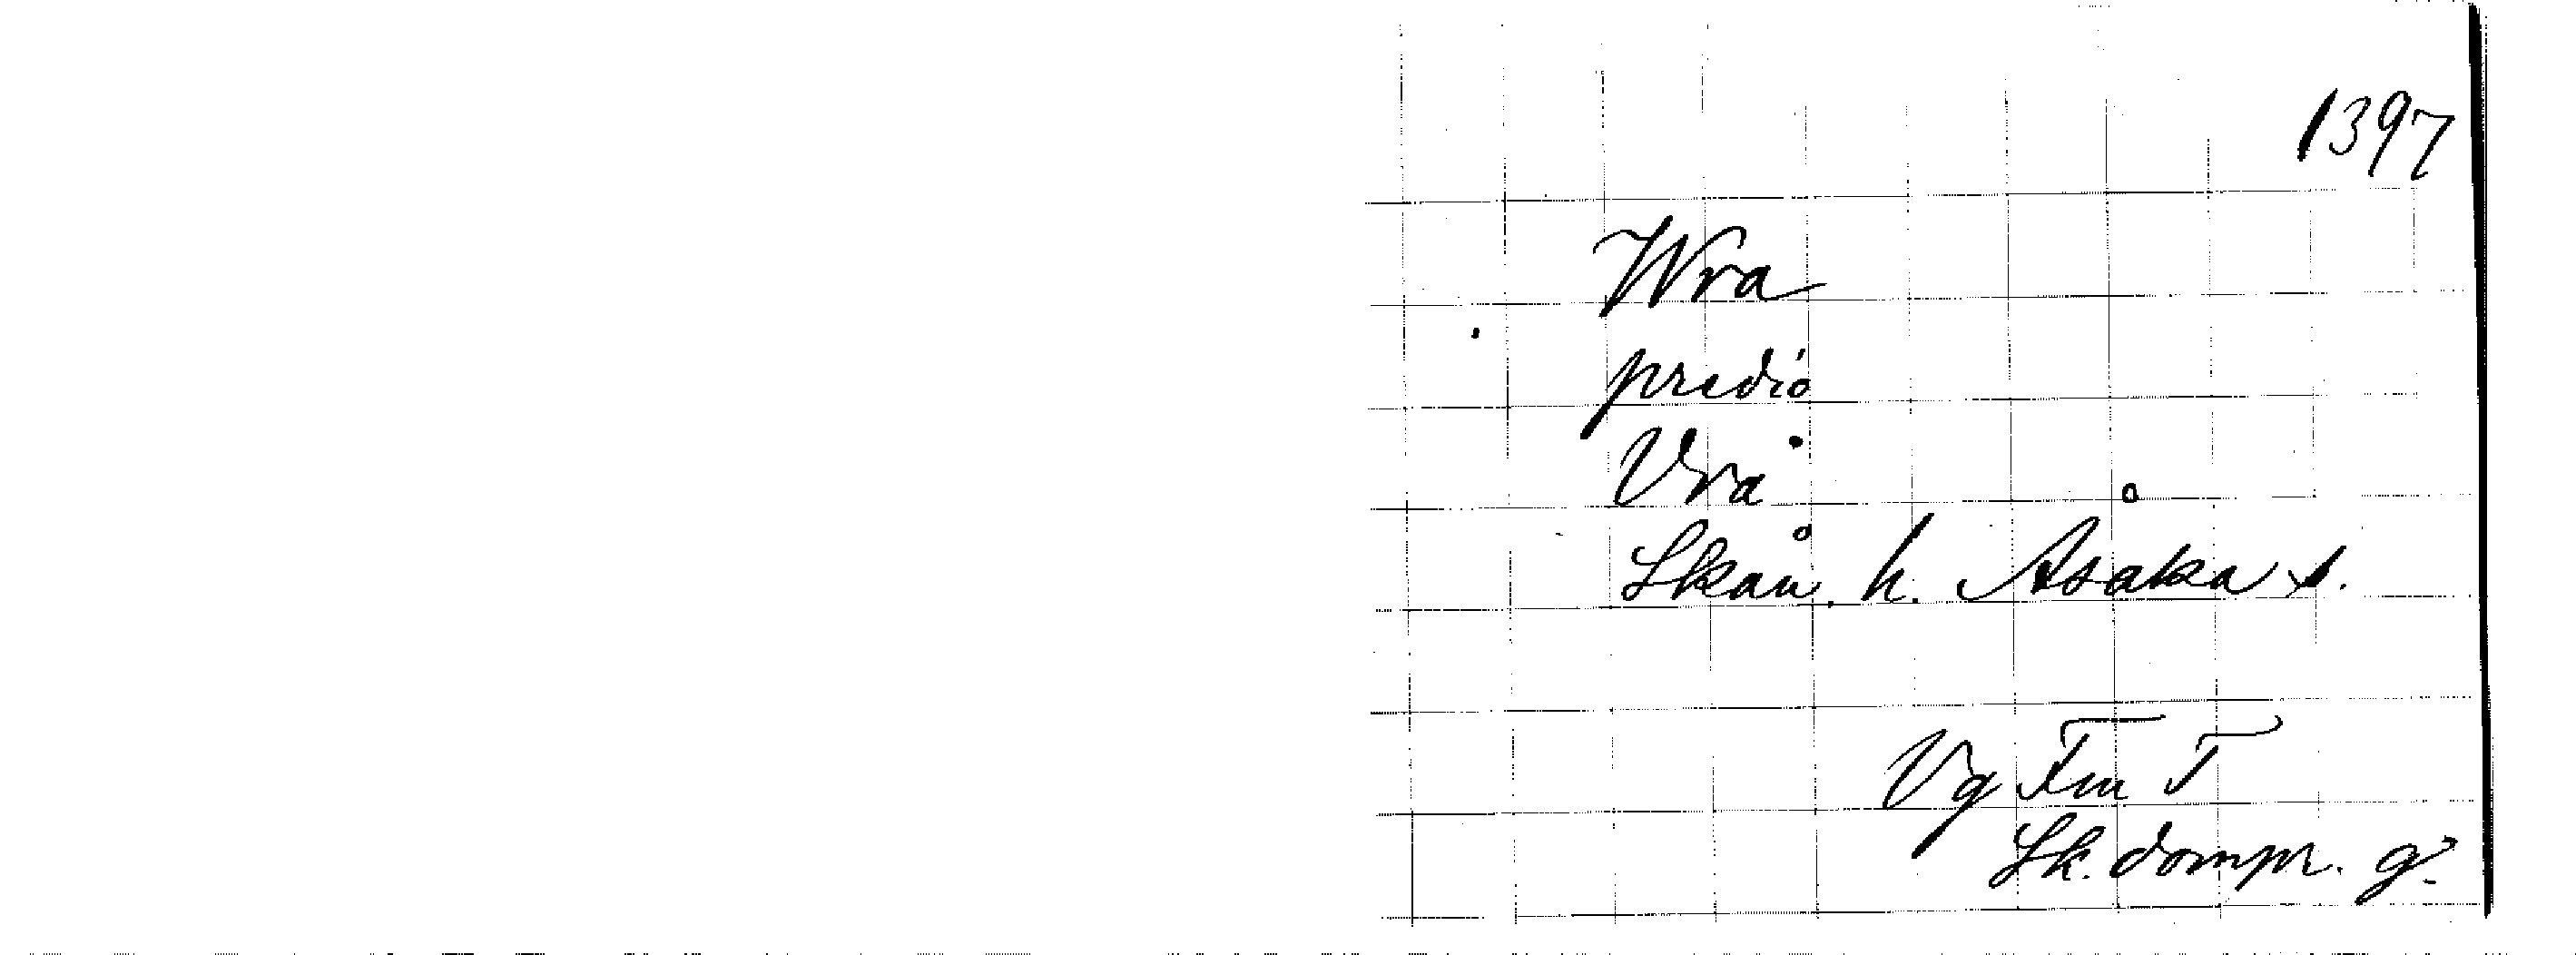 1397
Wra
predio
Vrå
Skån. h. Åsaka s.
Vg Fm T
Sk. dompr. g?